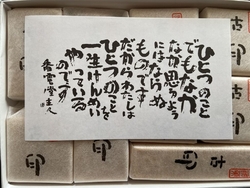 ひとつのこと
でもなかなか
なか思うよう
にはならぬ
ものです
だからわたしは
ひとつのことを
一生けんめい
やっている
のです
香雲堂主人
印
印